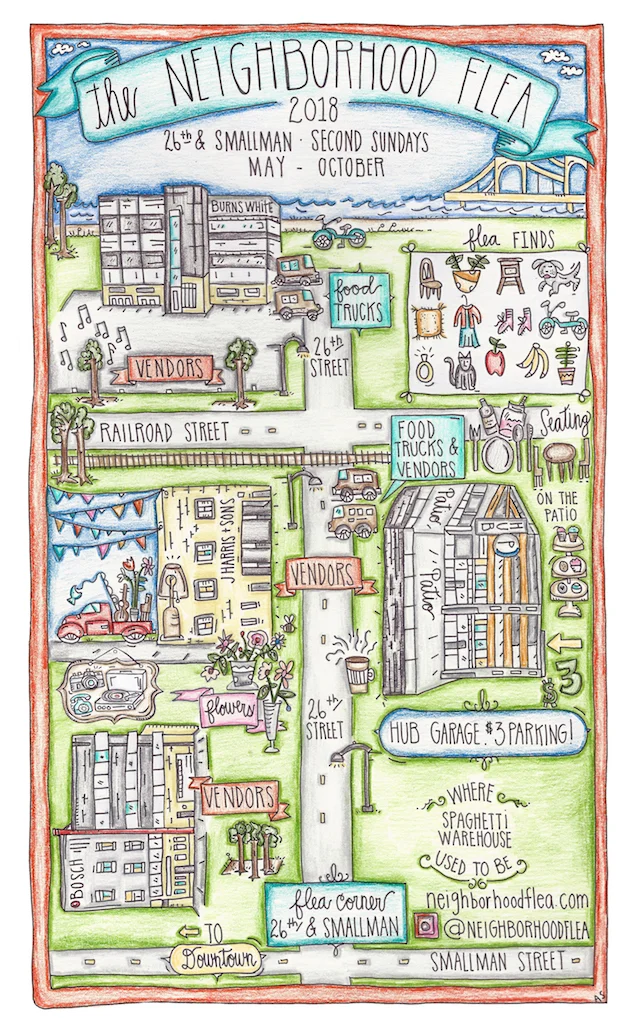 the NEIGHBORHOOD FLEA
2018
26th & SMALLMAN · SECOND SUNDAYS
MAY - OCTOBER
BURNS WHITE
flea FINDS
food
TRUCKS
26th
STREET
VENDORS
RAILROAD STREET
FOOD
TRUCKS &
VENDORS
Seating
ON THE
PATIO
J HARRIS + SONS
Patio
Patio
HUB
VENDORS
flowers
26th
STREET
$3
HUB GARAGE. $3 PARKING!
VENDORS
BOSCH
WHERE
SPAGHETTI
WAREHOUSE
USED TO BE
neighborhoodflea.com
@NEIGHBORHOODFLEA
flea corner
26th & SMALLMAN
TO
Downtown
SMALLMAN STREET
AS